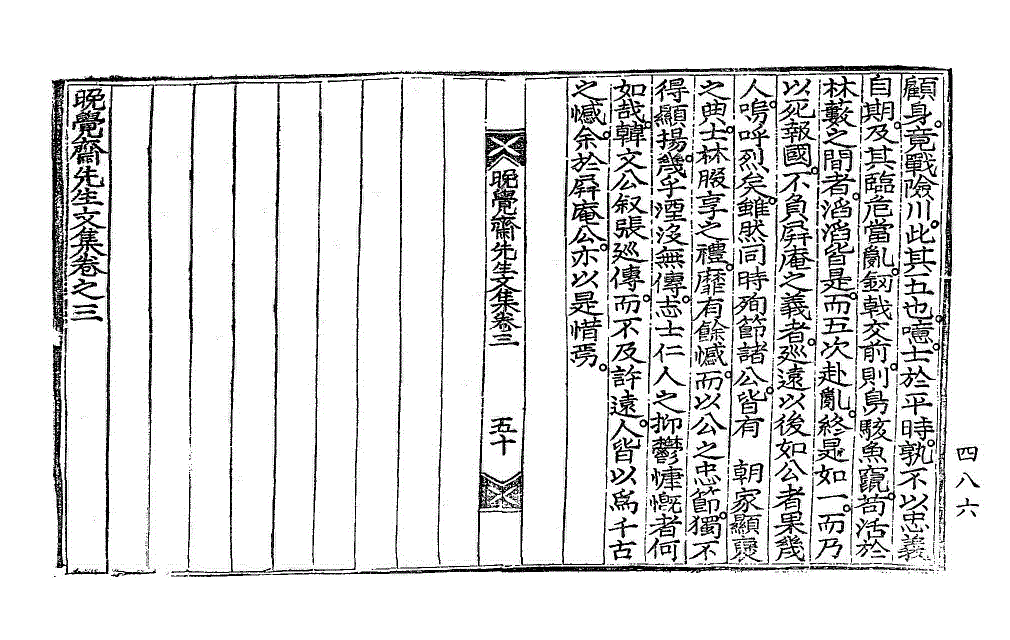 顧身。竟戰險川。此其五也。噫。士於平時。孰不以忠義
自期。及其臨危當亂。釼戟交前。則鳥駭魚竄。苟活於
林藪之間者。滔滔皆是。而五次赴亂。終是如一。而乃
以死報國。不負屛庵之義者。巡遠以後如公者果幾
人。嗚呼烈矣。雖然同時殉節諸公。皆有　朝家顯褒
之典。士林腏享之禮。靡有餘憾。而以公之忠節。獨不
得顯揚。幾乎湮沒無傳。志士仁人之抑鬱慷慨者何
如哉。韓文公叙張巡傳。而不及許遠。人皆以爲千古
之憾。余於屛庵公。亦以是惜焉。
晩覺齋先生文集卷三
五十
晩覺齋先生文集卷之三
四八六